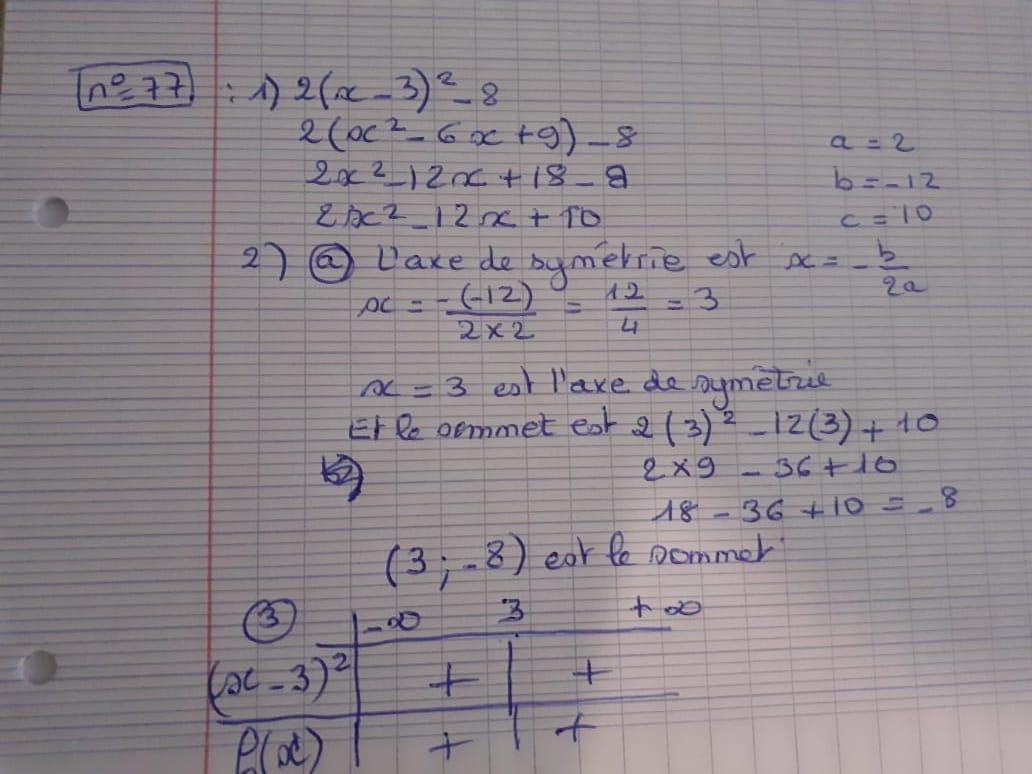 n° 77 : 1) 2(x - 3)² - 8
2(x² - 6x + 9) - 8
a = 2
2x² - 12x + 18 - 8
b = -12
2x² - 12x + 10
c = 10
2) ⓐ L'axe de symétrie est x = - b/2a
x = -(-12)/2×2 = 12/4 = 3
x = 3 est l'axe de symétrie
Et le sommet est 2(3)² - 12(3) + 10
2×9 - 36 + 10
18 - 36 + 10 = -8
(3 ; -8) est le sommet
③ -∞ 3 +∞
(x - 3)² + +
f(x) + +